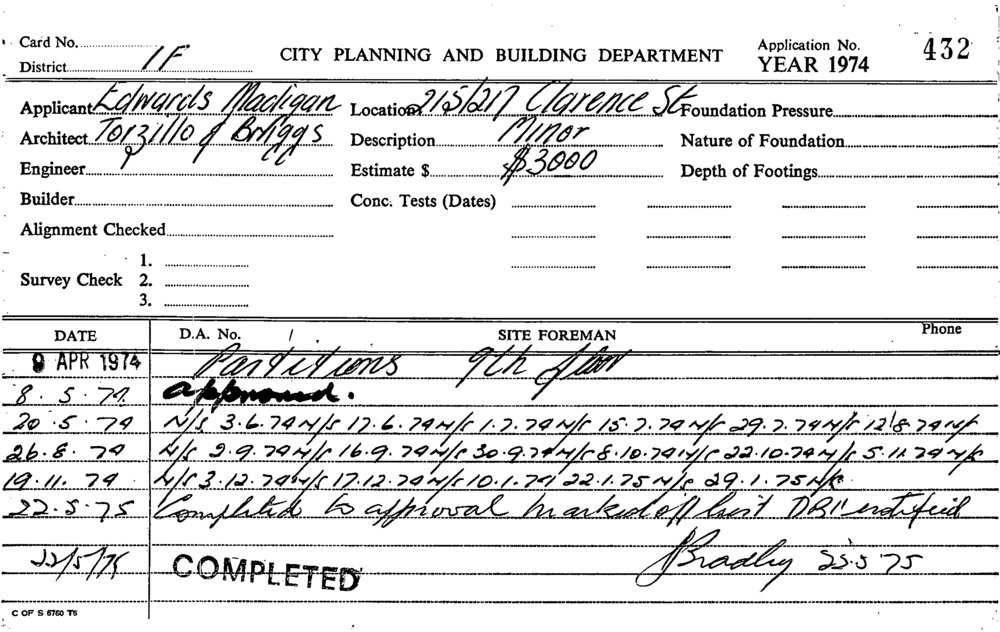 Card No.
District 1F
CITY PLANNING AND BUILDING DEPARTMENT
Application No. 432
YEAR 1974
Applicant Edwards Madigan Location 215/217 Clarence St Foundation Pressure
Architect Torzillo & Briggs Description Minor Nature of Foundation
Engineer Estimate $ $3000 Depth of Footings
Builder Conc. Tests (Dates)
Alignment Checked
Survey Check 1.
2.
3.
DATE D.A. No. / SITE FOREMAN Phone
9 APR 1974 Partitions 9th floor
8.5.74 approved.
20.5.74 N/S 3.6.74 N/S 17.6.74 N/S 1.7.74 N/S 15.7.74 N/S 29.7.74 N/S 12.8.74 N/S
26.8.74 N/S 2.9.74 N/S 16.9.74 N/S 30.9.74 N/S 8.10.74 N/S 22.10.74 N/S 5.11.74 N/S
19.11.74 N/S 3.12.74 N/S 17.12.74 N/S 10.1.75 22.1.75 N/S 29.1.75 N/S
22.5.75 Completed to approval marked off list DBI notified
22/5/75 COMPLETED JBradley 25.5.75
C OF S 6750 T6